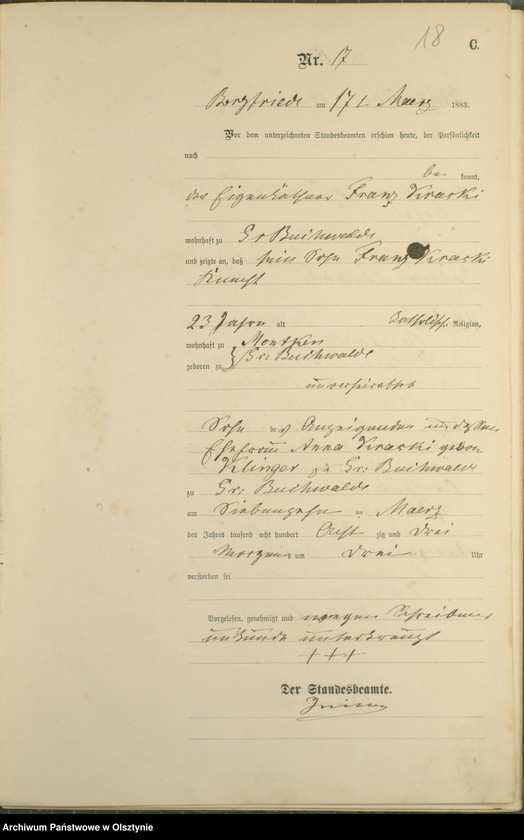 18
C.
Nr. 17
am 17t Maerz 1883.
Vor dem unterzeichneten Standesbeamten erschien heute, der Persönlichkeit
nach
be kannt,
der Eigenkäthner Franz Kraski
wohnhaft zu Gr Buchwalde
und zeigte an, daß sein Sohn Franz Kraski
Knecht
23 Jahre alt katholisch Religion,
wohnhaft zu Montken
geboren zu Gr: Buchwalde
unverheirathet
Sohn des Anzeigenden und dessen
Ehefrau Anna Kraski geborn
Klinger zu Gr: Buchwalde
zu Gr: Buchwalde
am Siebenzehn en Maerz
des Jahres tausend acht hundert Acht zig und drei
Morgens um drei Uhr
verstorben sei
Vorgelesen, genehmigt und wegen Schreibens
unkunde unterkreuzt
+++
Der Standesbeamte.
Archiwum Państwowe w Olsztynie